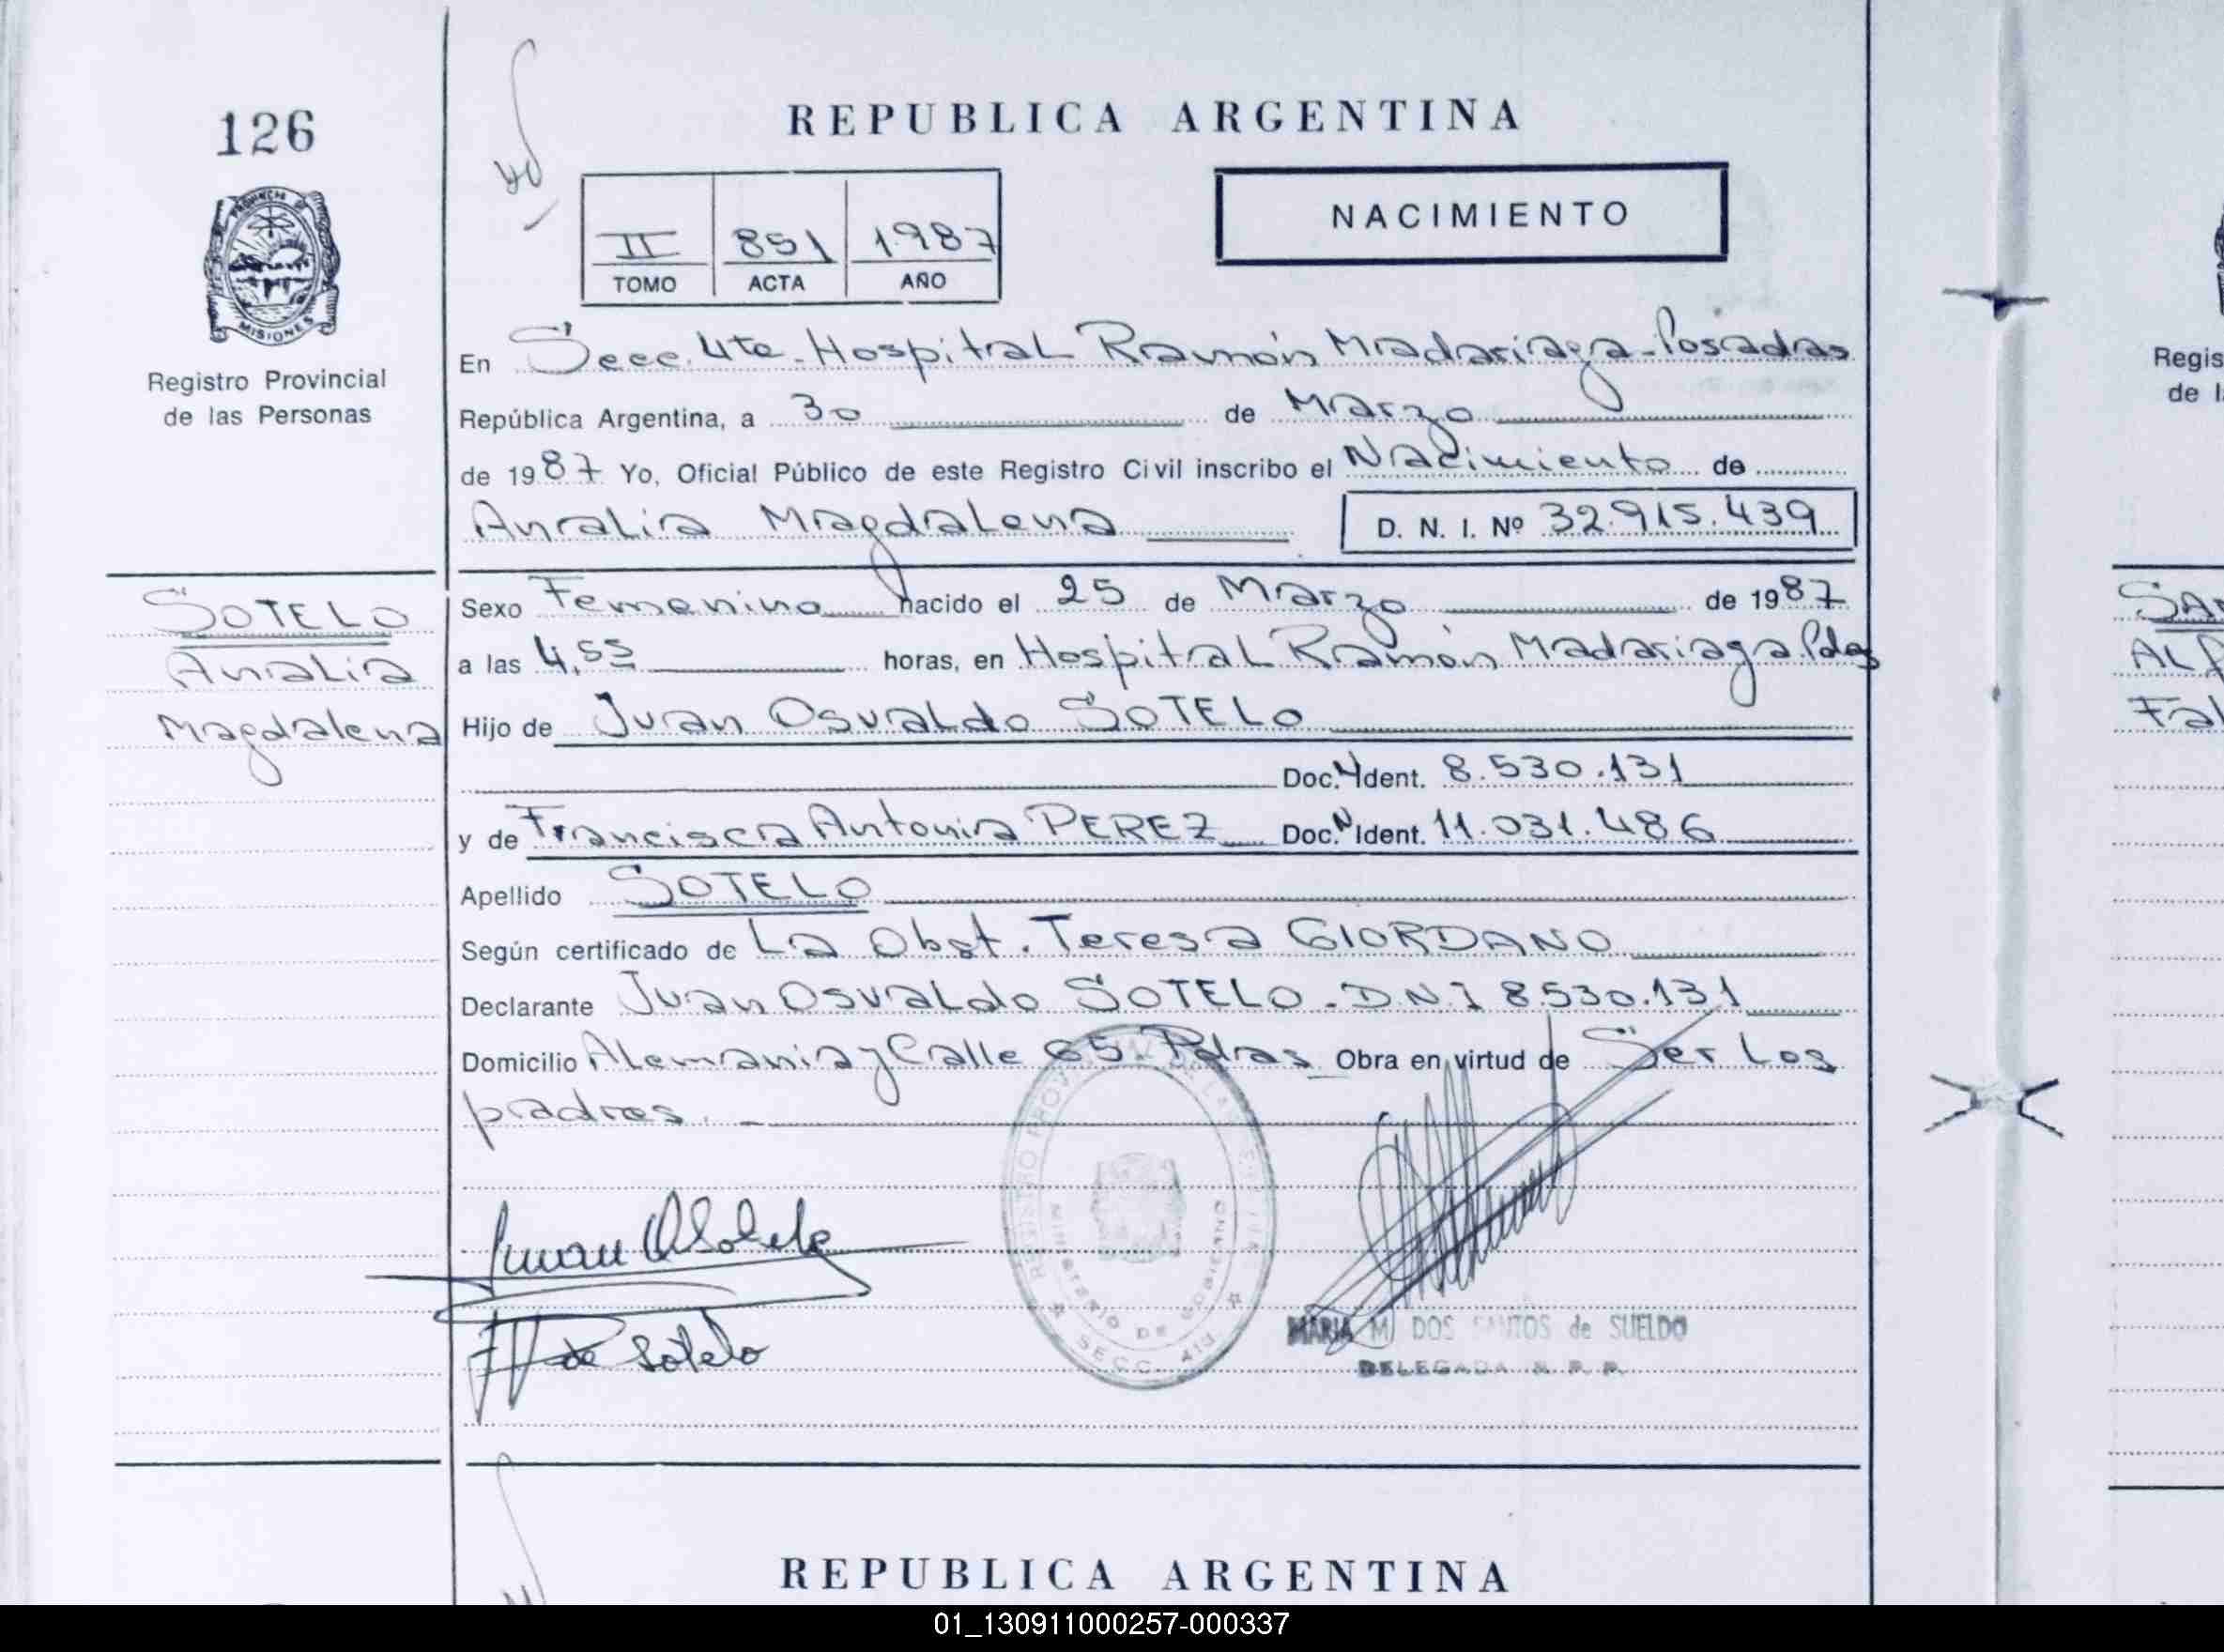 126
PROVINCIA DE
MISIONES
Registro Provincial
de las Personas
REPUBLICA ARGENTINA
NACIMIENTO
II 851 1987
TOMO ACTA AÑO
En Secc. 4ta. Hospital Ramón Madariaga - Posadas
República Argentina, a 30 de Marzo
de 1987 Yo, Oficial Público de este Registro Civil inscribo el Nacimiento de
Analia Magdalena D. N. I. Nº 32.915.439
SOTELO
Analia
Magdalena
Sexo Femenino nacido el 25 de Marzo de 1987
a las 4,55 horas, en Hospital Ramón Madariaga Pdas
Hijo de Juan Osvaldo SOTELO
Doc. Ident. 8.530.131
y de Francisca Antonia PEREZ Doc. Ident. 11.031.486
Apellido SOTELO
Según certificado de La Obst. Teresa GIORDANO
Declarante Juan Osvaldo SOTELO. D.N.I 8.530.131
Domicilio Alemania y Calle 65. Pdas Obra en virtud de Ser Los
padres.
Juan O Sotelo
de Sotelo
MINISTERIO DE GOBIERNO
SECC. 4ta
MARIA M. DOS SANTOS de SUELDO
DELEGADA R. P. P.
REPUBLICA ARGENTINA
Regis
de l
01_130911000257-000337